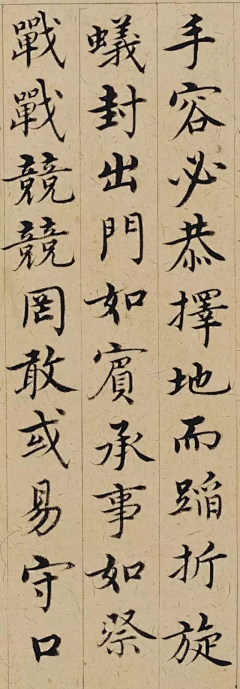 手容必恭擇地而蹈折旋
蟻封出門如賓承事如祭
戰戰競競罔敢或易守口